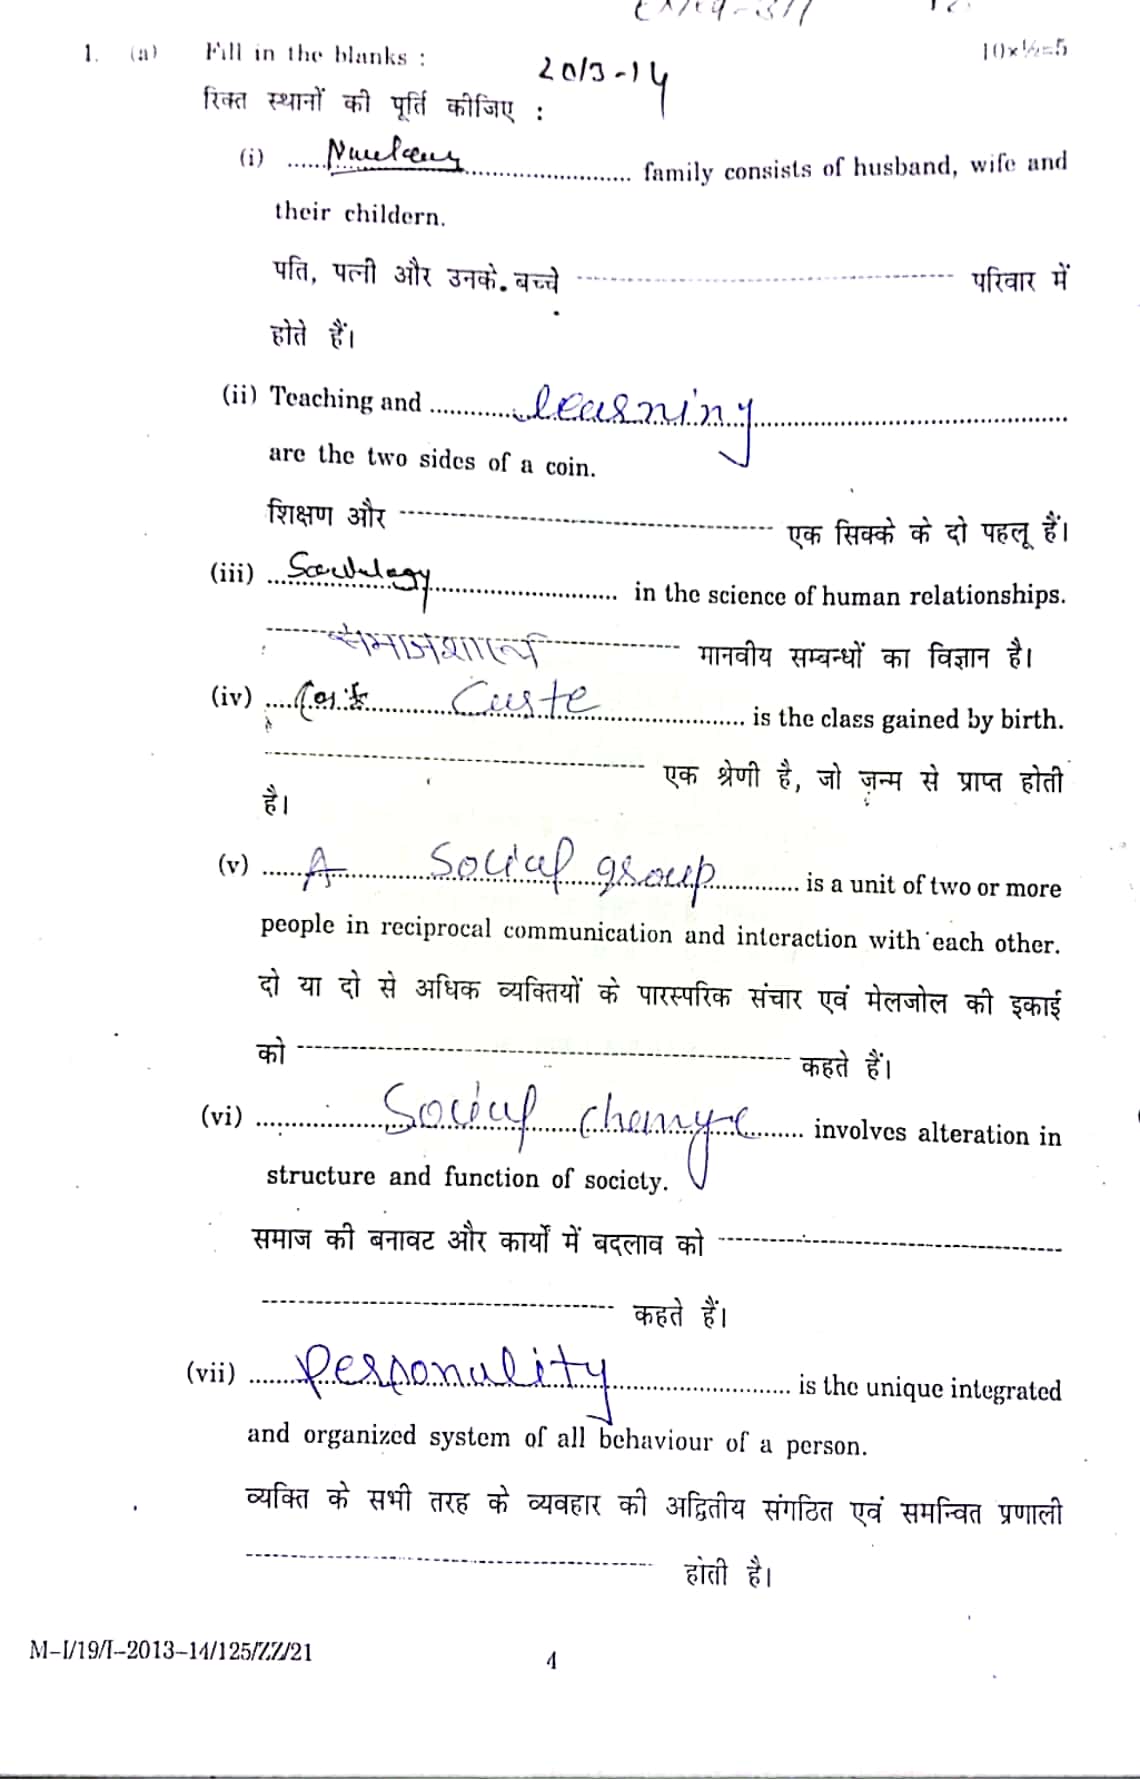 1. (a) Fill in the blanks : 10×½=5
20/3-14
रिक्त स्थानों की पूर्ति कीजिए :
(i) ...... ........................... family consists of husband, wife and
their childern.
पति, पत्नी और उनके. बच्चे ------------------------------ परिवार में
होते हैं।
(ii) Teaching and ............ learning ..............................
are the two sides of a coin.
शिक्षण और ------------------------------ एक सिक्के के दो पहलू हैं।
(iii) .............................. in the science of human relationships.
------ समाजशास्त्र ------------ मानवीय सम्बन्धों का विज्ञान है।
(iv) .................. Caste .................. is the class gained by birth.
------------------------------ एक श्रेणी है, जो जन्म से प्राप्त होती
है।
(v) ...... A ............ Social group ............ is a unit of two or more
people in reciprocal communication and interaction with each other.
दो या दो से अधिक व्यक्तियों के पारस्परिक संचार एवं मेलजोल की इकाई
को ---------------------------------------- कहते हैं।
(vi) .................. Social change ......... involves alteration in
structure and function of society.
समाज की बनावट और कार्यों में बदलाव को ------------------------------
------------------------------ कहते हैं।
(vii) ...... Personality .................. is the unique integrated
and organized system of all behaviour of a person.
व्यक्ति के सभी तरह के व्यवहार की अद्वितीय संगठित एवं समन्वित प्रणाली
------------------------------ होती है।
M–I/19/I–2013–14/125/ZZ/21 4